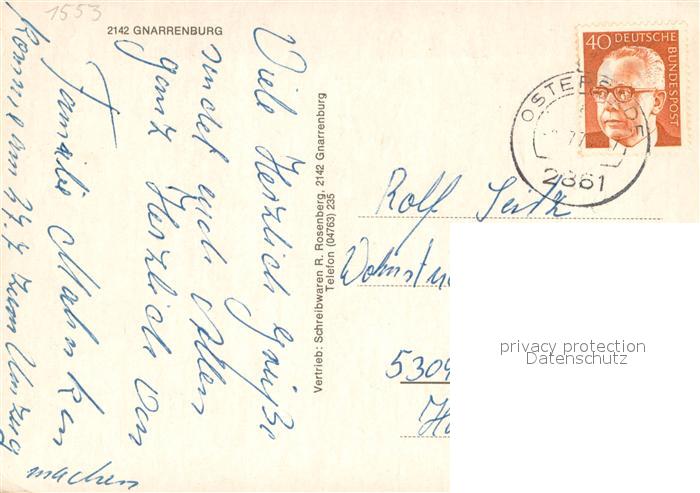 1553
2142 GNARRENBURG
Viele Herzlich Grüße
sendet euch Allen
ganz Herzlich von
Familie Mahnken
komme am 27.7 zum Umzug
machen
Vertrieb: Schreibwaren R. Rosenberg, 2142 Gnarrenburg
Telefon (04763) 235
40 DEUTSCHE
BUNDESPOST
2861
Rolf Seitz
5309
privacy protection
Datenschutz